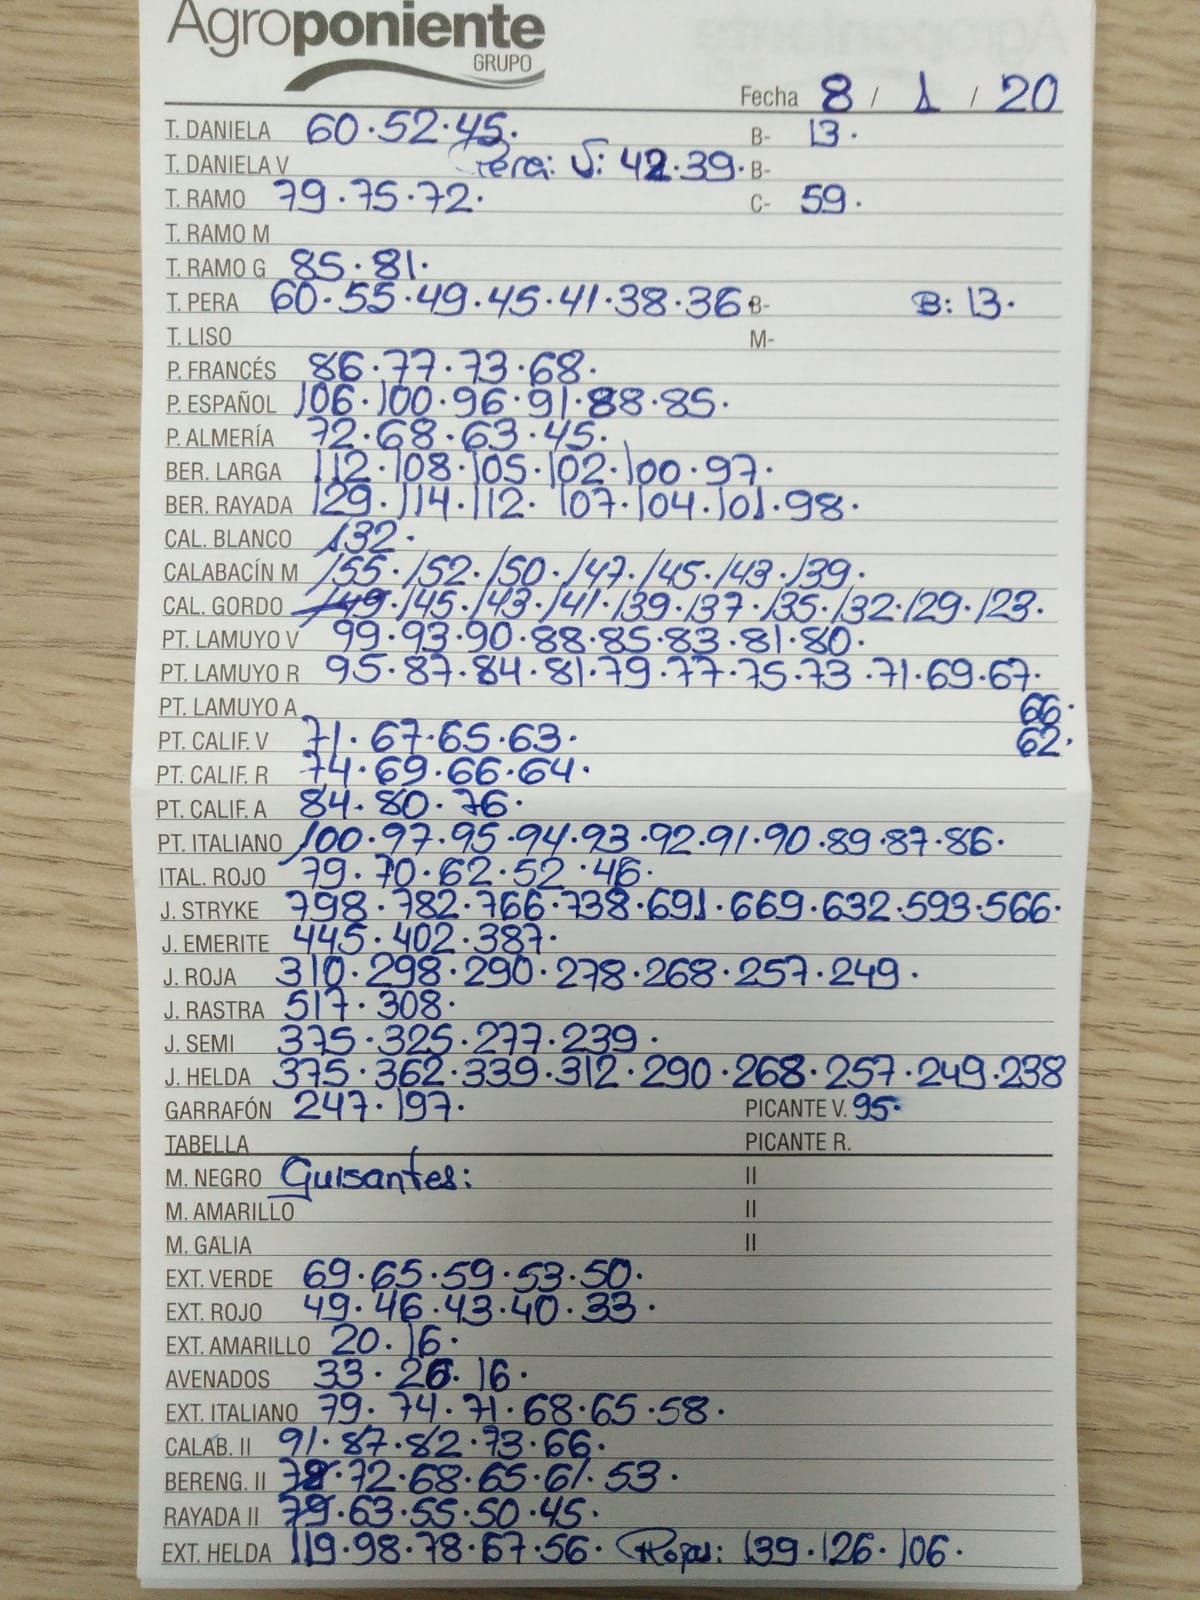 Agroponiente
GRUPO
Fecha 8 / 1 / 20
T. DANIELA 60·52·45· B- 13·
T. DANIELA V Pera: V: 42·39· B-
T. RAMO 79·75·72· C- 59·
T. RAMO M
T. RAMO G 85·81·
T. PERA 60·55·49·45·41·38·36· B- B: 13·
T. LISO M-
P. FRANCÉS 86·77·73·68·
P. ESPAÑOL 106·100·96·91·88·85·
P. ALMERÍA 72·68·63·45·
BER. LARGA 112·108·105·102·100·97·
BER. RAYADA 129·114·112·107·104·101·98·
CAL. BLANCO 132·
CALABACÍN M 155·152·150·147·145·143·139·
CAL. GORDO 149·145·143·141·139·137·135·132·129·123·
PT. LAMUYO V 99·93·90·88·85·83·81·80·
PT. LAMUYO R 95·87·84·81·79·77·75·73·71·69·67·
PT. LAMUYO A 66·
PT. CALIF. V 71·67·65·63· 62·
PT. CALIF. R 74·69·66·64·
PT. CALIF. A 84·80·76·
PT. ITALIANO 100·97·95·94·93·92·91·90·89·87·86·
ITAL. ROJO 79·70·62·52·46·
J. STRYKE 798·782·766·738·691·669·632·593·566·
J. EMERITE 445·402·387·
J. ROJA 310·298·290·278·268·257·249·
J. RASTRA 517·308·
J. SEMI 375·325·277·239·
J. HELDA 375·362·339·312·290·268·257·249·238
GARRAFÓN 247·197· PICANTE V. 95·
TABELLA PICANTE R.
M. NEGRO Guisantes: II
M. AMARILLO II
M. GALIA II
EXT. VERDE 69·65·59·53·50·
EXT. ROJO 49·46·43·40·33·
EXT. AMARILLO 20·16·
AVENADOS 33·26·16·
EXT. ITALIANO 79·74·71·68·65·58·
CALAB. II 91·87·82·73·66·
BERENG. II 78·72·68·65·61·53·
RAYADA II 79·63·55·50·45·
EXT. HELDA 119·98·78·67·56· Roja: 139·126·106·